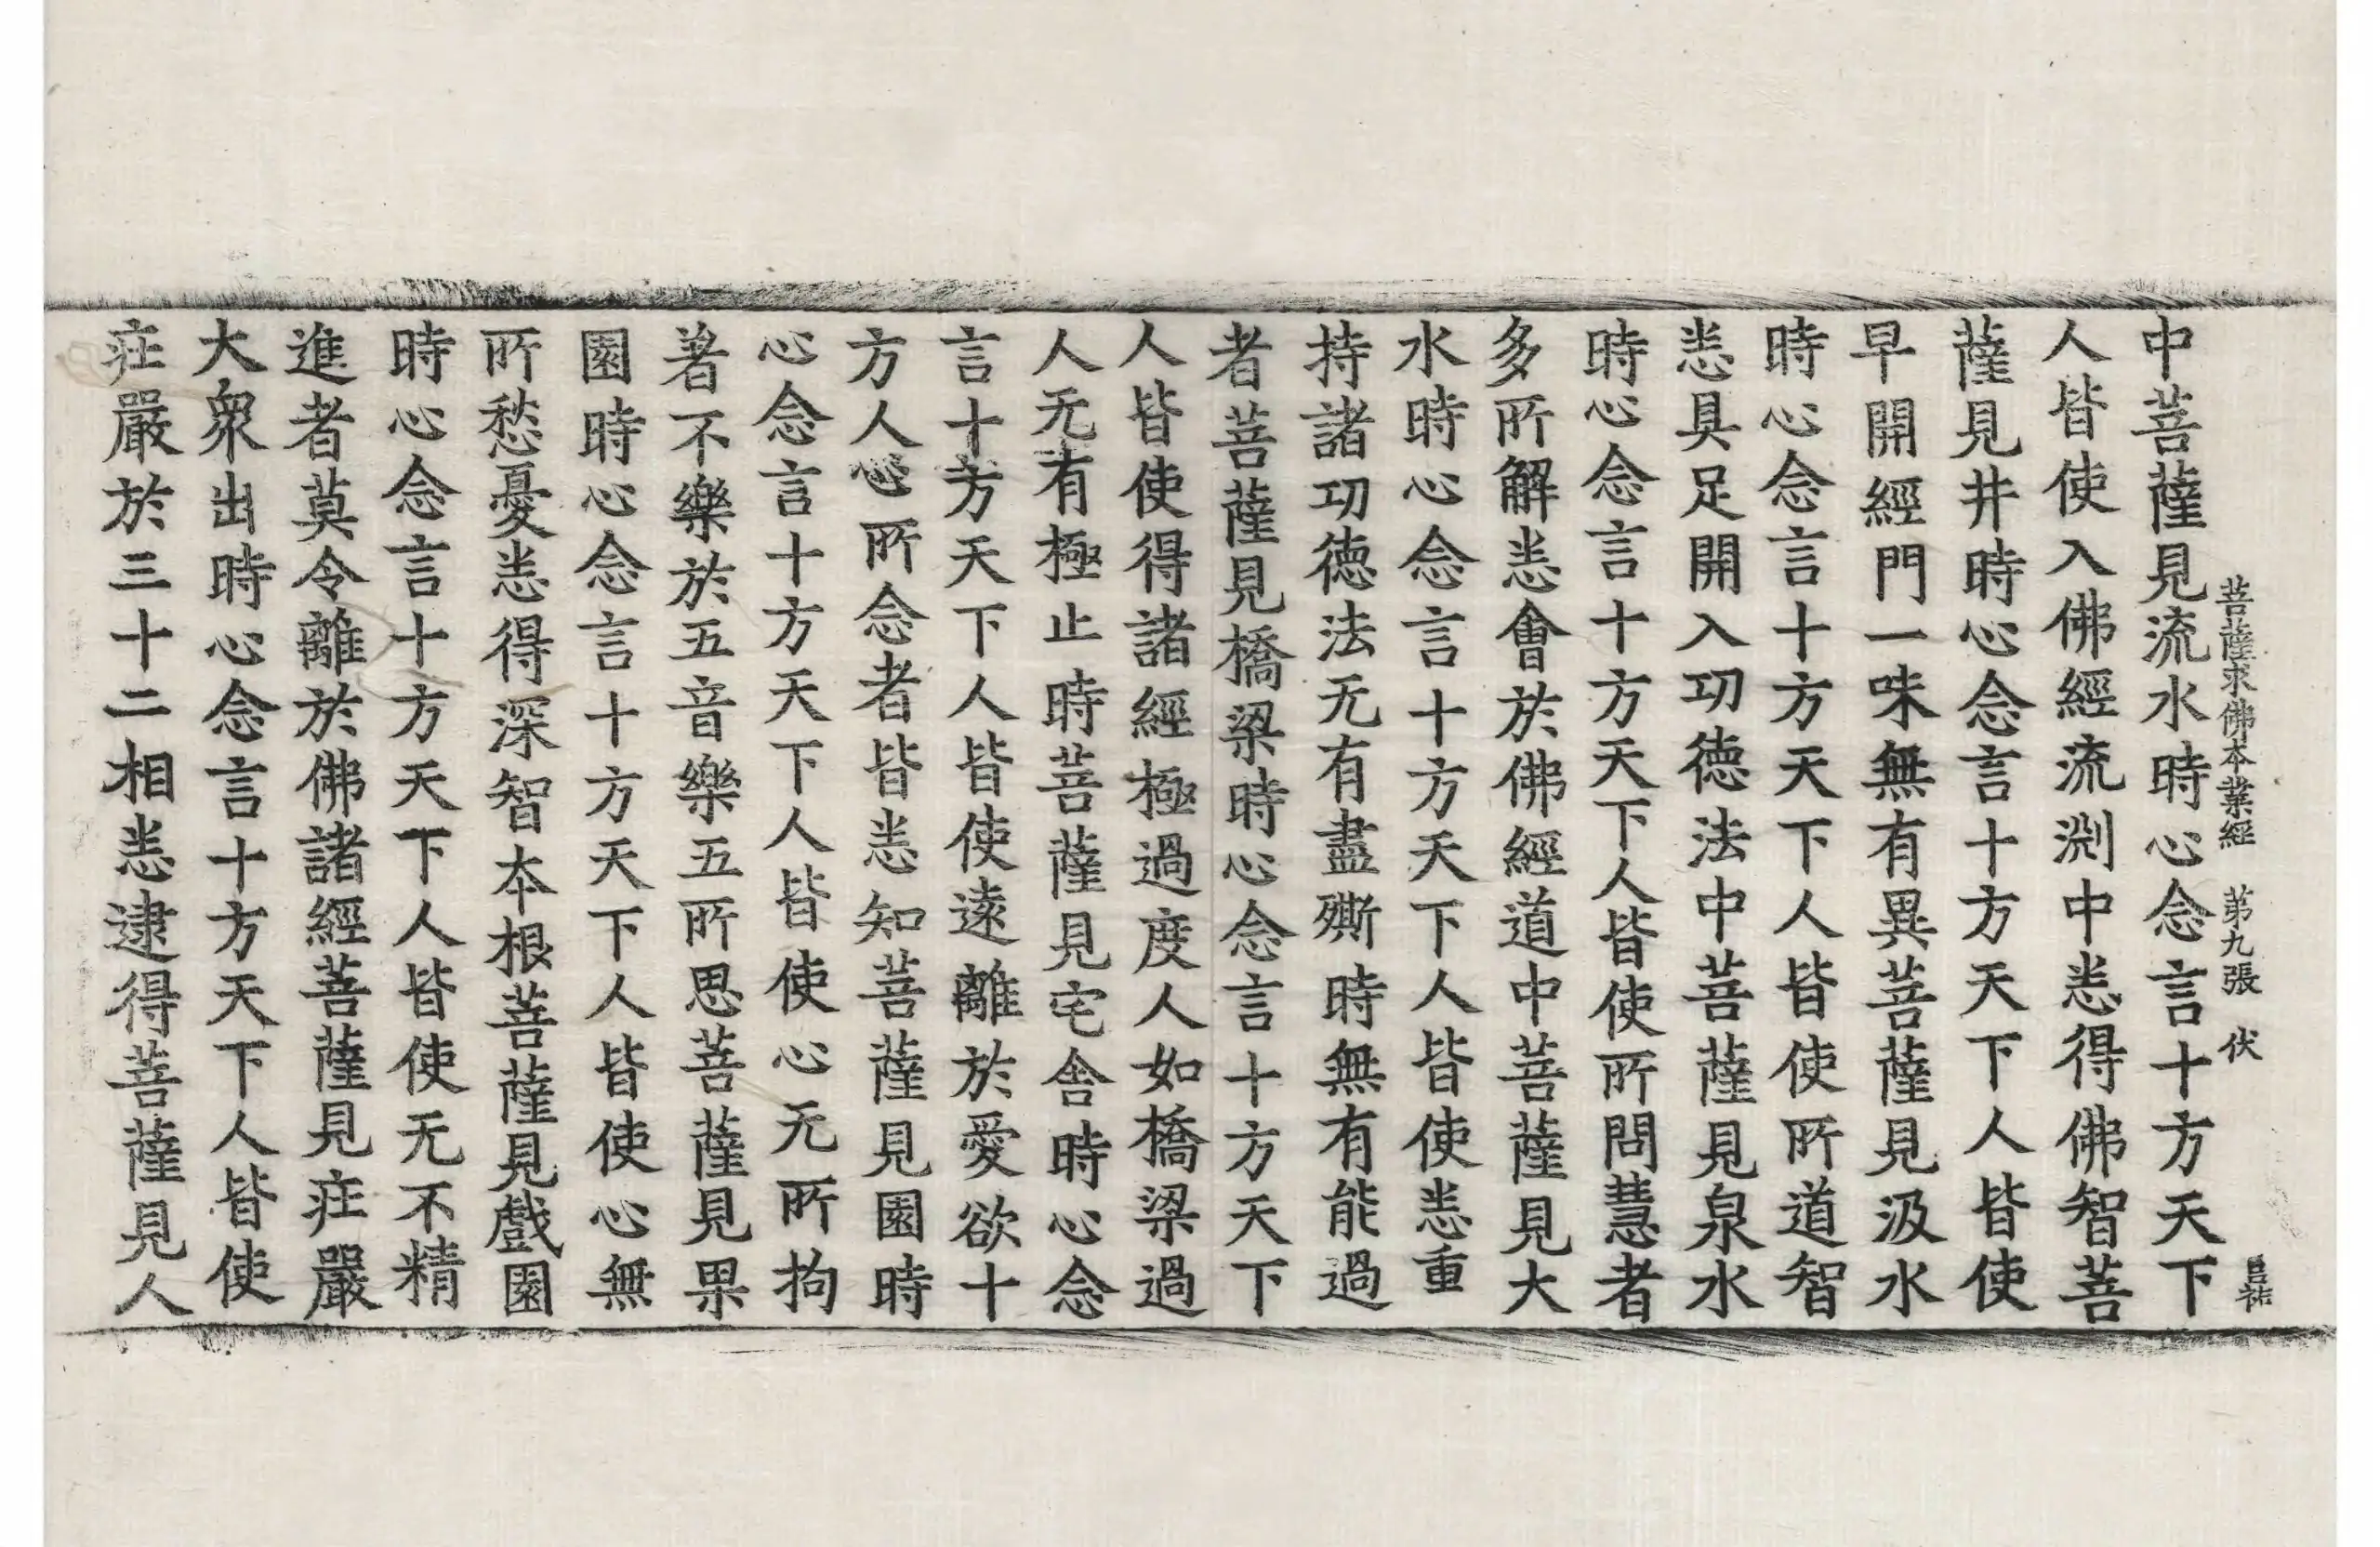 菩薩求佛本業經 第九張 伏
中菩薩見流水時心念言十方天下
人皆使入佛經流渕中悉得佛智菩
薩見井時心念言十方天下人皆使
早開經門一味無有異菩薩見汲水
時心念言十方天下人皆使所道智
悉具足開入功德法中菩薩見泉水
時心念言十方天下人皆使所問慧者
多所解悉會於佛經道中菩薩見大
水時心念言十方天下人皆使悉重
持諸功德法无有盡㒋時無有能過
者菩薩見橋梁時心念言十方天下
人皆使得諸經極過度人如橋梁過
人无有極止時菩薩見宅舍時心念
言十方天下人皆使遠離於愛欲十
方人心所念者皆悉知菩薩見園時
心念言十方天下人皆使心无所拘
著不樂於五音樂五所思菩薩見果
園時心念言十方天下人皆使心無
所愁憂悉得深智本根菩薩見戲園
時心念言十方天下人皆使无不精
進者莫令離於佛諸經菩薩見庄嚴
大衆出時心念言十方天下人皆使
庄嚴於三十二相悉逮得菩薩見人